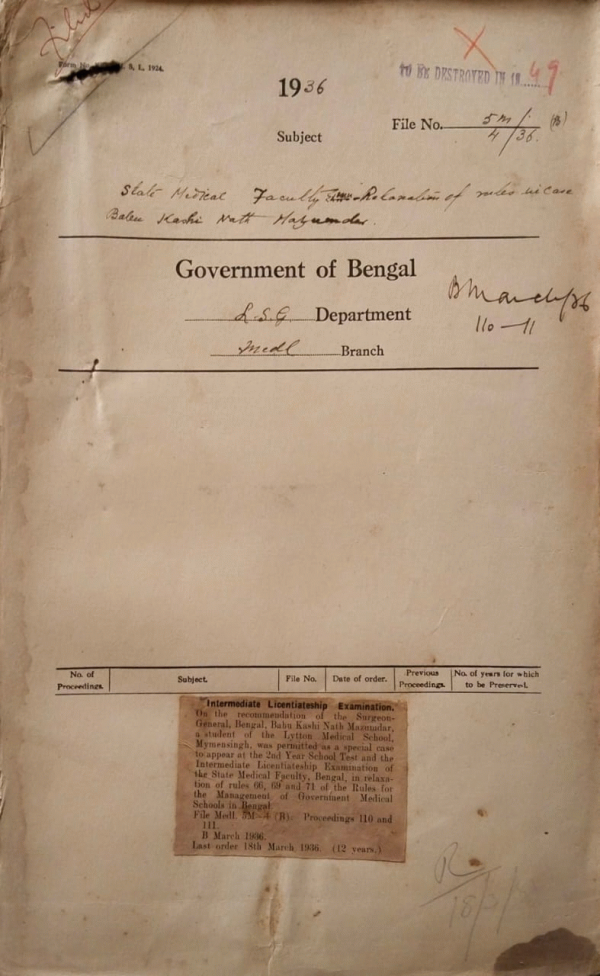 Filed
S. L., 1934.
TO BE DESTROYED IN 19 49
1936
File No. 5M/4/36. (B)
Subject
State Medical Faculty Relaxation of rules in case
Babu Kashi Nath Mazumdar.
Government of Bengal
L.S.G Department
Medl Branch
B March/36
110-11
No. of Proceedings.
Subject.
File No.
Date of order.
Previous Proceedings.
No. of years for which to be Preserved.
Intermediate Licentiateship Examination.
On the recommendation of the Surgeon-
General, Bengal, Babu Kashi Nath Mazumdar,
a student of the Lytton Medical School,
Mymensingh, was permitted as a special case
to appear at the 2nd Year School Test and the
Intermediate Licentiateship Examination of
the State Medical Faculty, Bengal, in relaxa-
tion of rules 66, 69 and 71 of the Rules for
the Management of Government Medical
Schools in Bengal.
File Medl. 5M-4 (B): Proceedings 110 and
111.
B March 1936.
Last order 18th March 1936. (12 years.)
R
18/3/